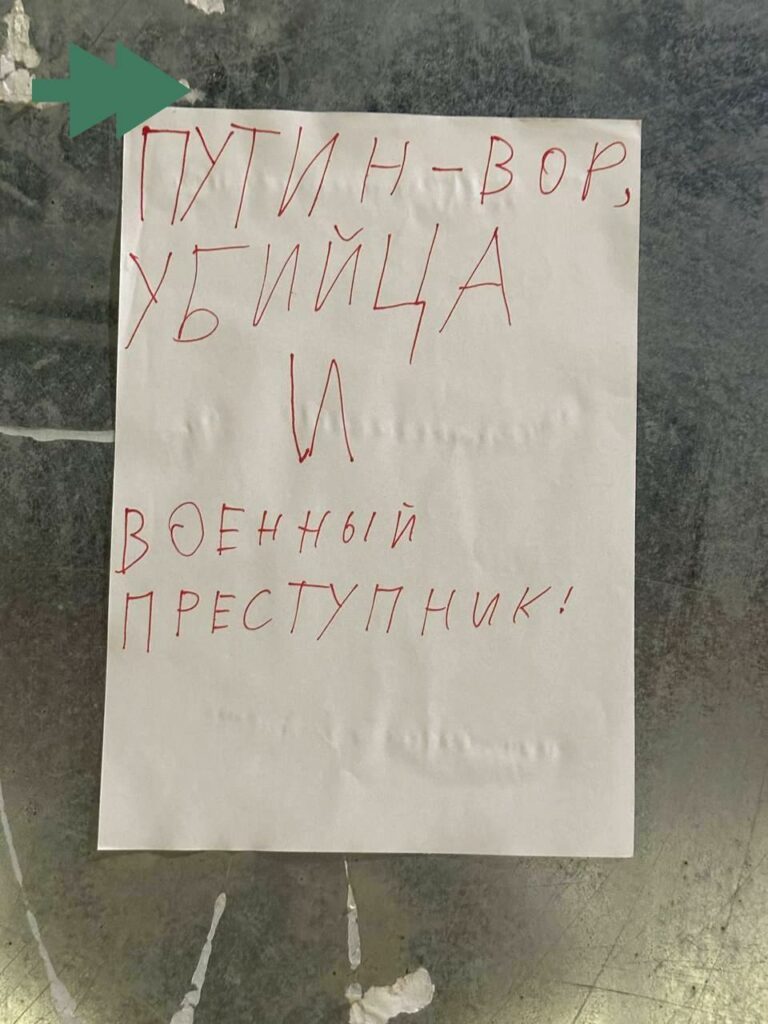 ПУТИН-ВОР,
УБИЙЦА
И
ВОЕННЫЙ
ПРЕСТУПНИК!